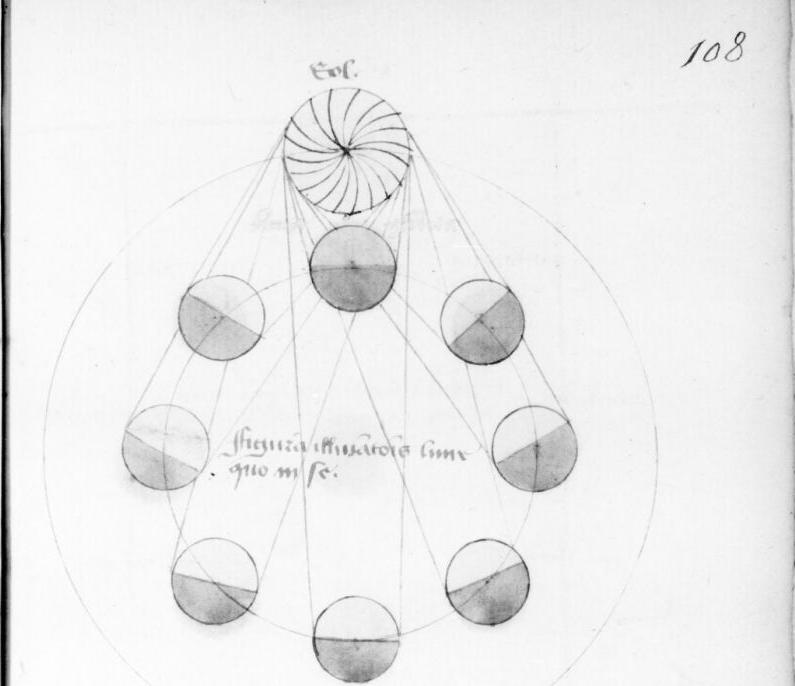 108
Sol.
figura illuĩatõis lune
quo in se.